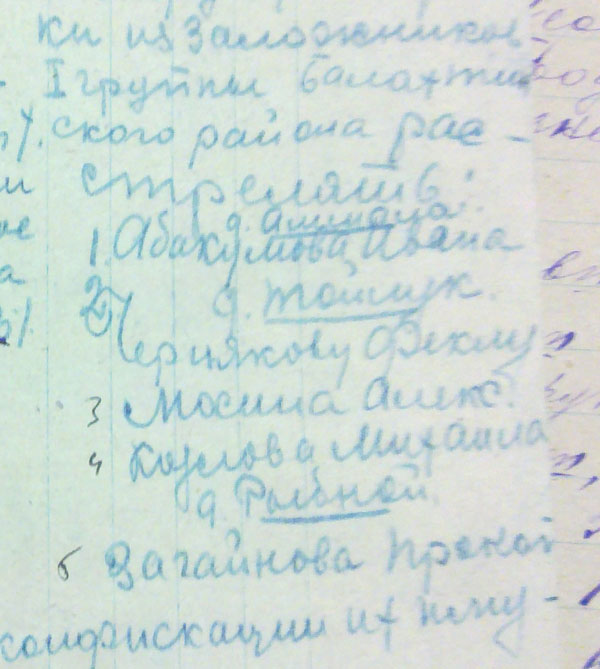 ки из заложников
I группы Балахтин
ского района рас-
стрелять:
д.
1. Абакумова Ивана
2) д. Тойлук.
Чернякову Феклу
3 Мосина Алекс.
4 Козлова Михаила
д. Рыбной.
5 Загайнова Прокоп
конфискации их иму-